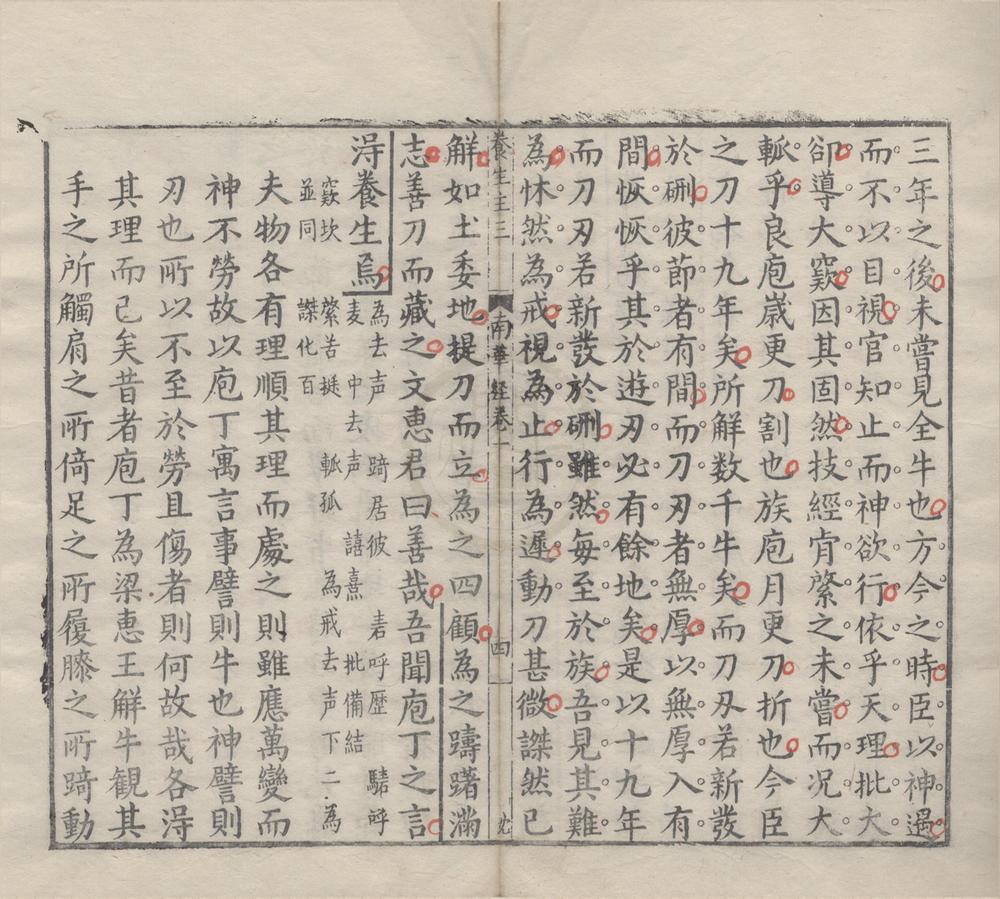 三年之後未嘗見全牛也方今之時臣以神遇
而不以目視官知止而神欲行依乎天理批大
卻導大窾因其固然技經肯綮之未嘗而况大
軱乎良庖歲更刀割也族庖月更刀折也今臣
之刀十九年矣所解数千牛矣而刀刃若新發
於硎彼節者有間而刀刃者無厚以無厚入有
間恢恢乎其於遊刃必有餘地矣是以十九年
而刀刃若新發於硎雖然每至於族吾見其難
為怵然為戒視為止行為遲動刀甚微謋然已
養生主三 南華經卷一 四
解如土委地提刀而立為之四顧為之躊躇滿
志善刀而藏之文惠君曰善哉吾聞庖丁之言
淂養生焉
為去声 踦居彼 砉呼歴 騞呼
麦 中去声 譆熹 批備結
窾坎 綮苦挺 軱孤 為戒去声下二為
並同 謋化百
夫物各有理順其理而處之則雖應萬變而
神不勞故以庖丁寓言事譬則牛也神譬則
刃也所以不至於勞且傷者則何故哉各淂
其理而已矣昔者庖丁為梁惠王解牛観其
手之所觸肩之所倚足之所履膝之所踦動